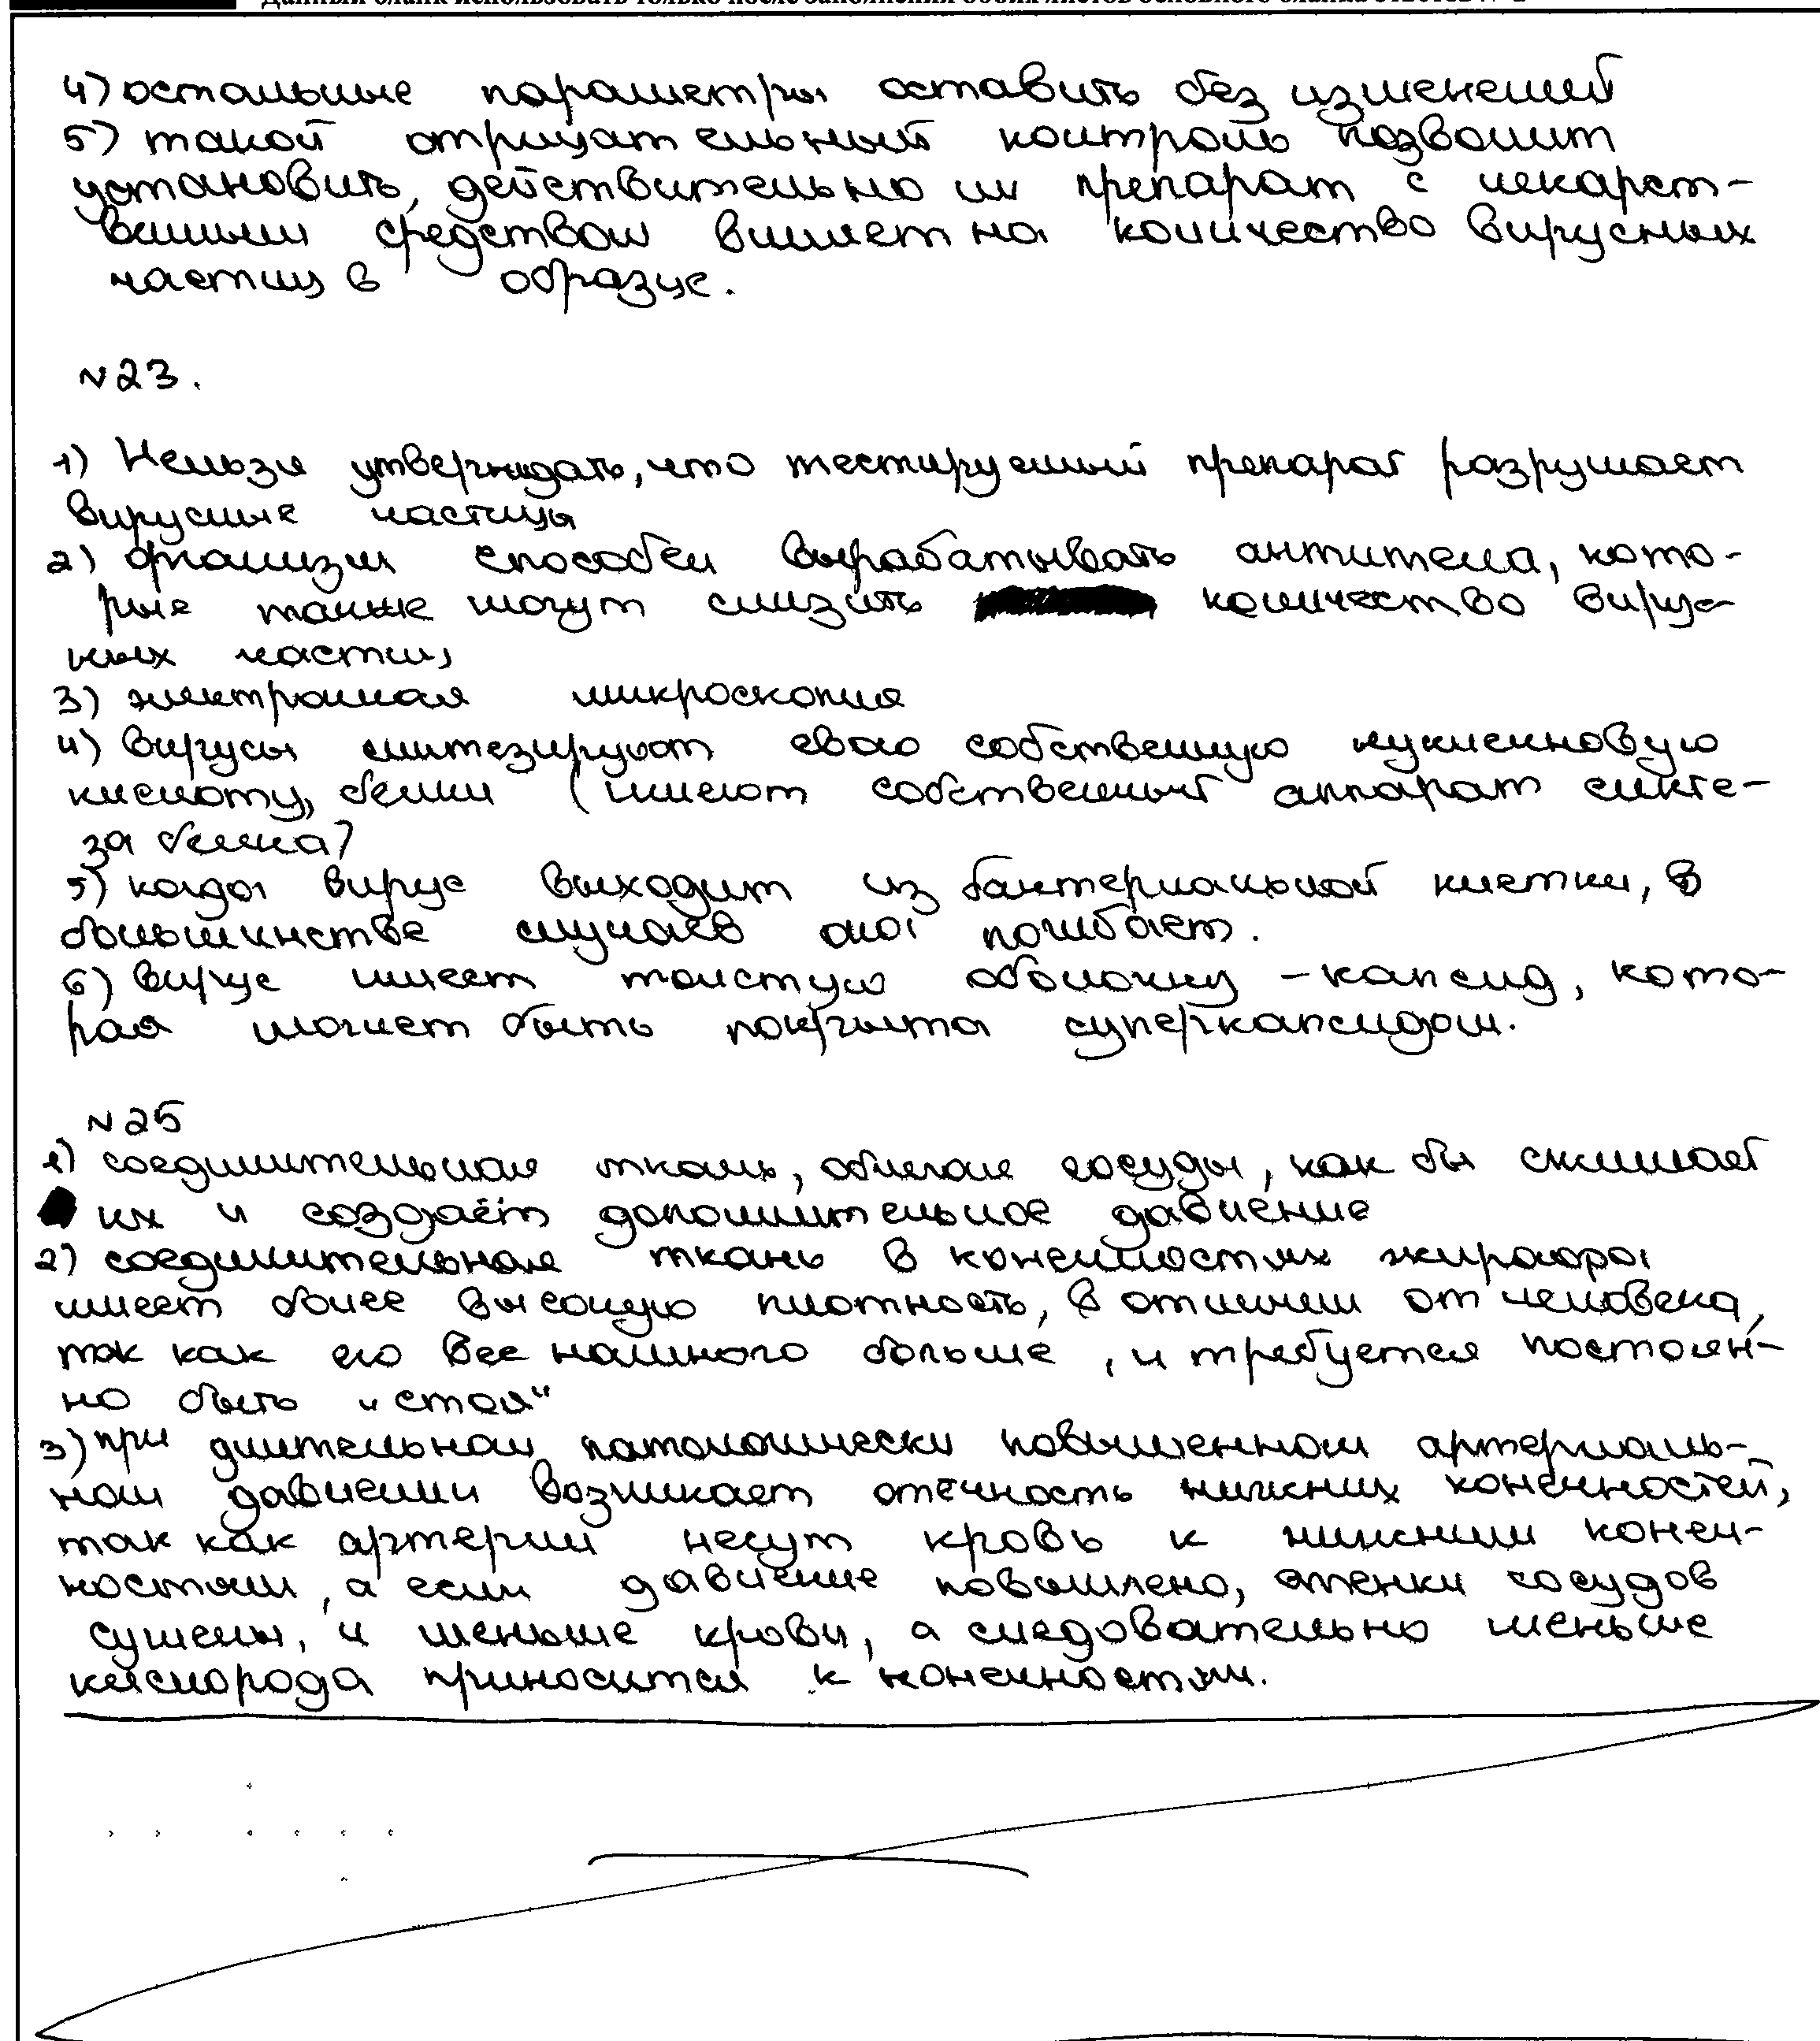 4) остальные параметры оставить без изменений
5) такой отрицательный контроль позволит
установить, действительно ли препарат с лекарст-
венным средством влияет на количество вирусных
частиц в образце.
№23.
1) Нельзя утверждать, что тестируемый препарат разрушает
вирусные частицы
2) организм способен вырабатывать антитела, кото-
рые также могут снизить количество вирус-
ных частиц
3) электронная микроскопия
4) вирусы синтезируют свою собственную нуклеиновую
кислоту, белки (имеют собственный аппарат синте-
за белка)
5) когда вирус выходит из бактериальной клетки, в
большинстве случаев она погибает.
6) вирус имеет толстую оболочку - капсид, кото-
рая может быть покрыта суперкапсидом.
№25
1) соединительная ткань, облегая сосуды, как бы сжимает
их и создаёт дополнительное давление
2) соединительная ткань в конечностях жирафа
имеет более высокую плотность, в отличии от человека,
так как его вес намного больше, и требуется постоян-
но быть "стоя"
3) при длительном патологически повышенном артериаль-
ном давлении возникает отечность нижних конечностей,
так как артерии несут кровь к нижним конеч-
ностям, а если давление повышено, стенки сосудов
сужены, и меньше крови, а следовательно меньше
кислорода приносится к конечностям.